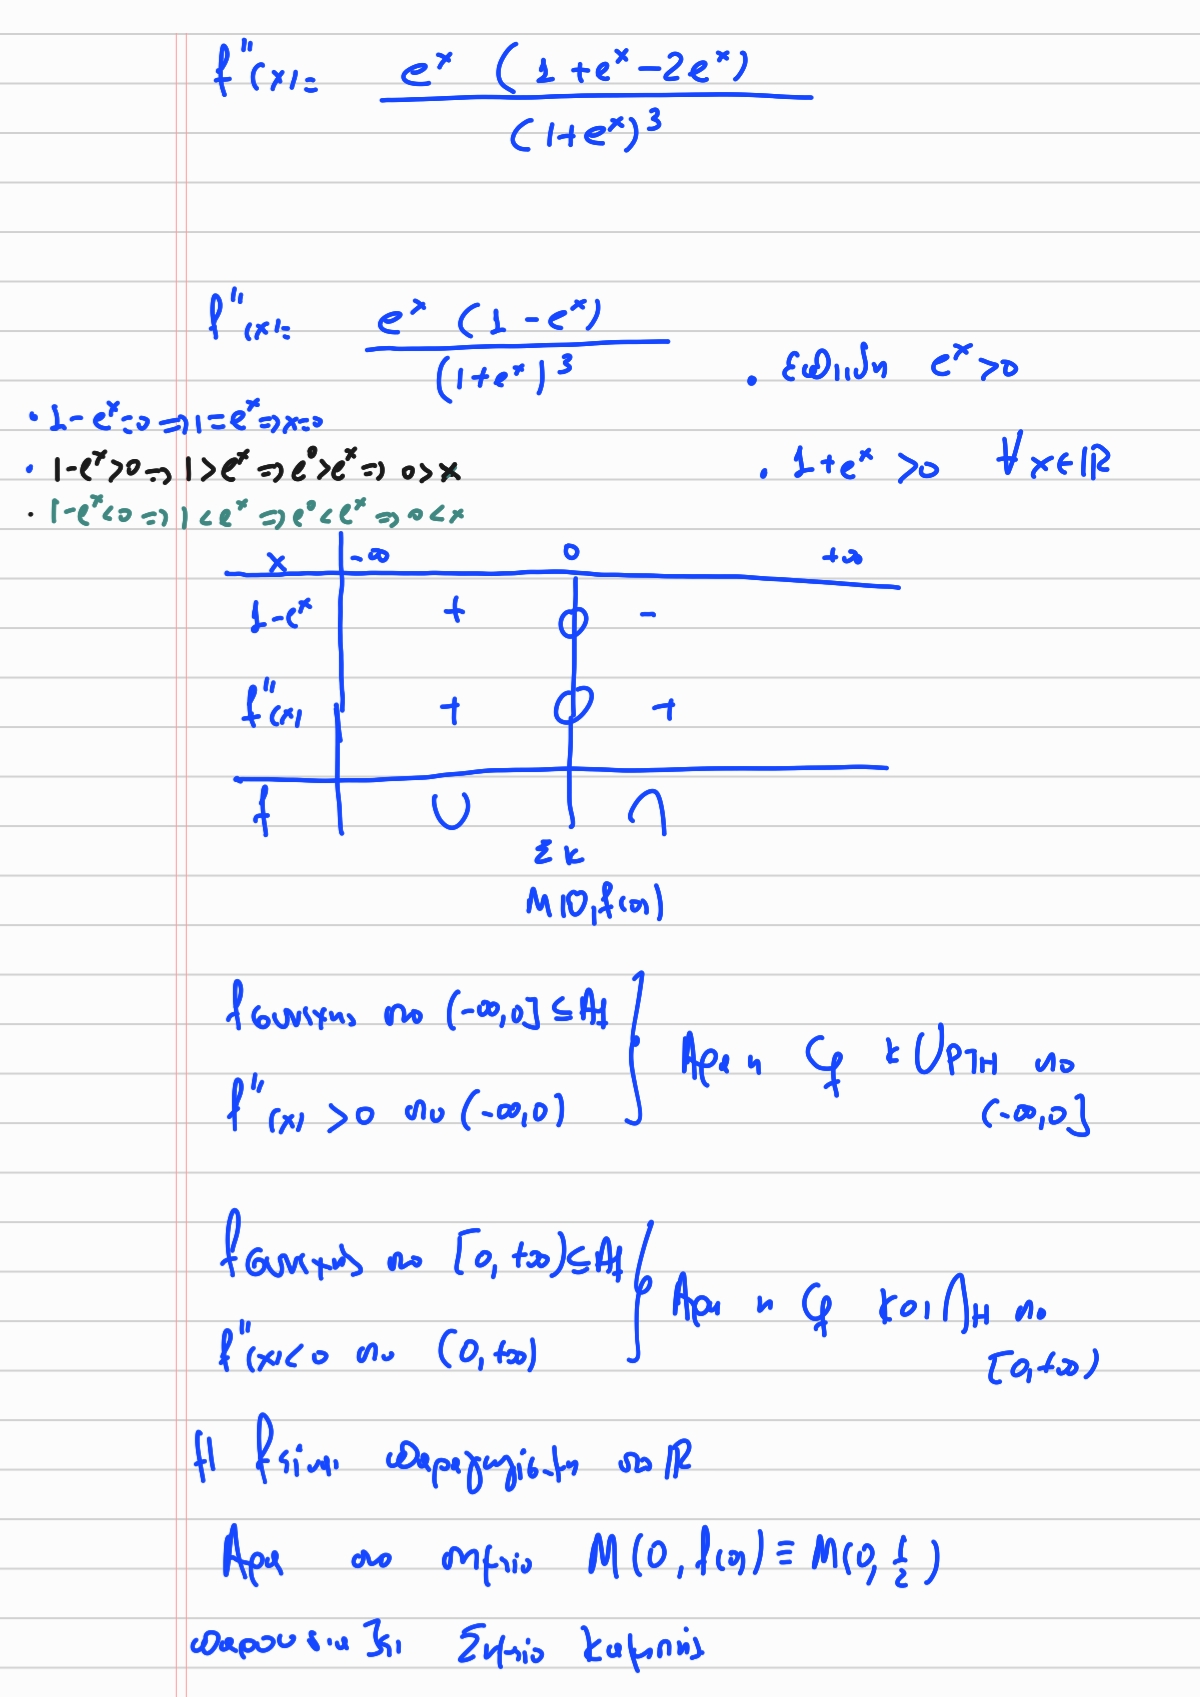 f''(x)= e^x (1+e^x-2e^x) / (1+e^x)^3
f''(x)= e^x (1-e^x) / (1+e^x)^3
• επειδη e^x>0
• 1-e^x=0 ⇒ 1=e^x ⇒ x=0
• 1-e^x>0 ⇒ 1>e^x ⇒ e^0>e^x ⇒ 0>x
• 1+e^x >0 ∀x∈ℝ
• 1-e^x<0 ⇒ 1<e^x ⇒ e^0<e^x ⇒ 0<x
x -∞ 0 +∞
1-e^x + 0 -
f''(x) + 0 +
f ∪ ∩
Σκ
M(0,f(0))
f συνεχης στο (-∞,0] ⊆ Af
f''(x) >0 στο (-∞,0)
Αρα η Cf κ∪ρτη στο
(-∞,0]
f συνεχης στο [0,+∞) ⊆ Af
f''(x)<0 στο (0,+∞)
Αρα η Cf κοι∩η στο
[0,+∞)
Η f ειναι παραγωγίσιμη στο ℝ
Αρα στο σημειο M(0,f(0)) ≡ M(0,1/2)
παρουσιαζει Σημειο καμπης